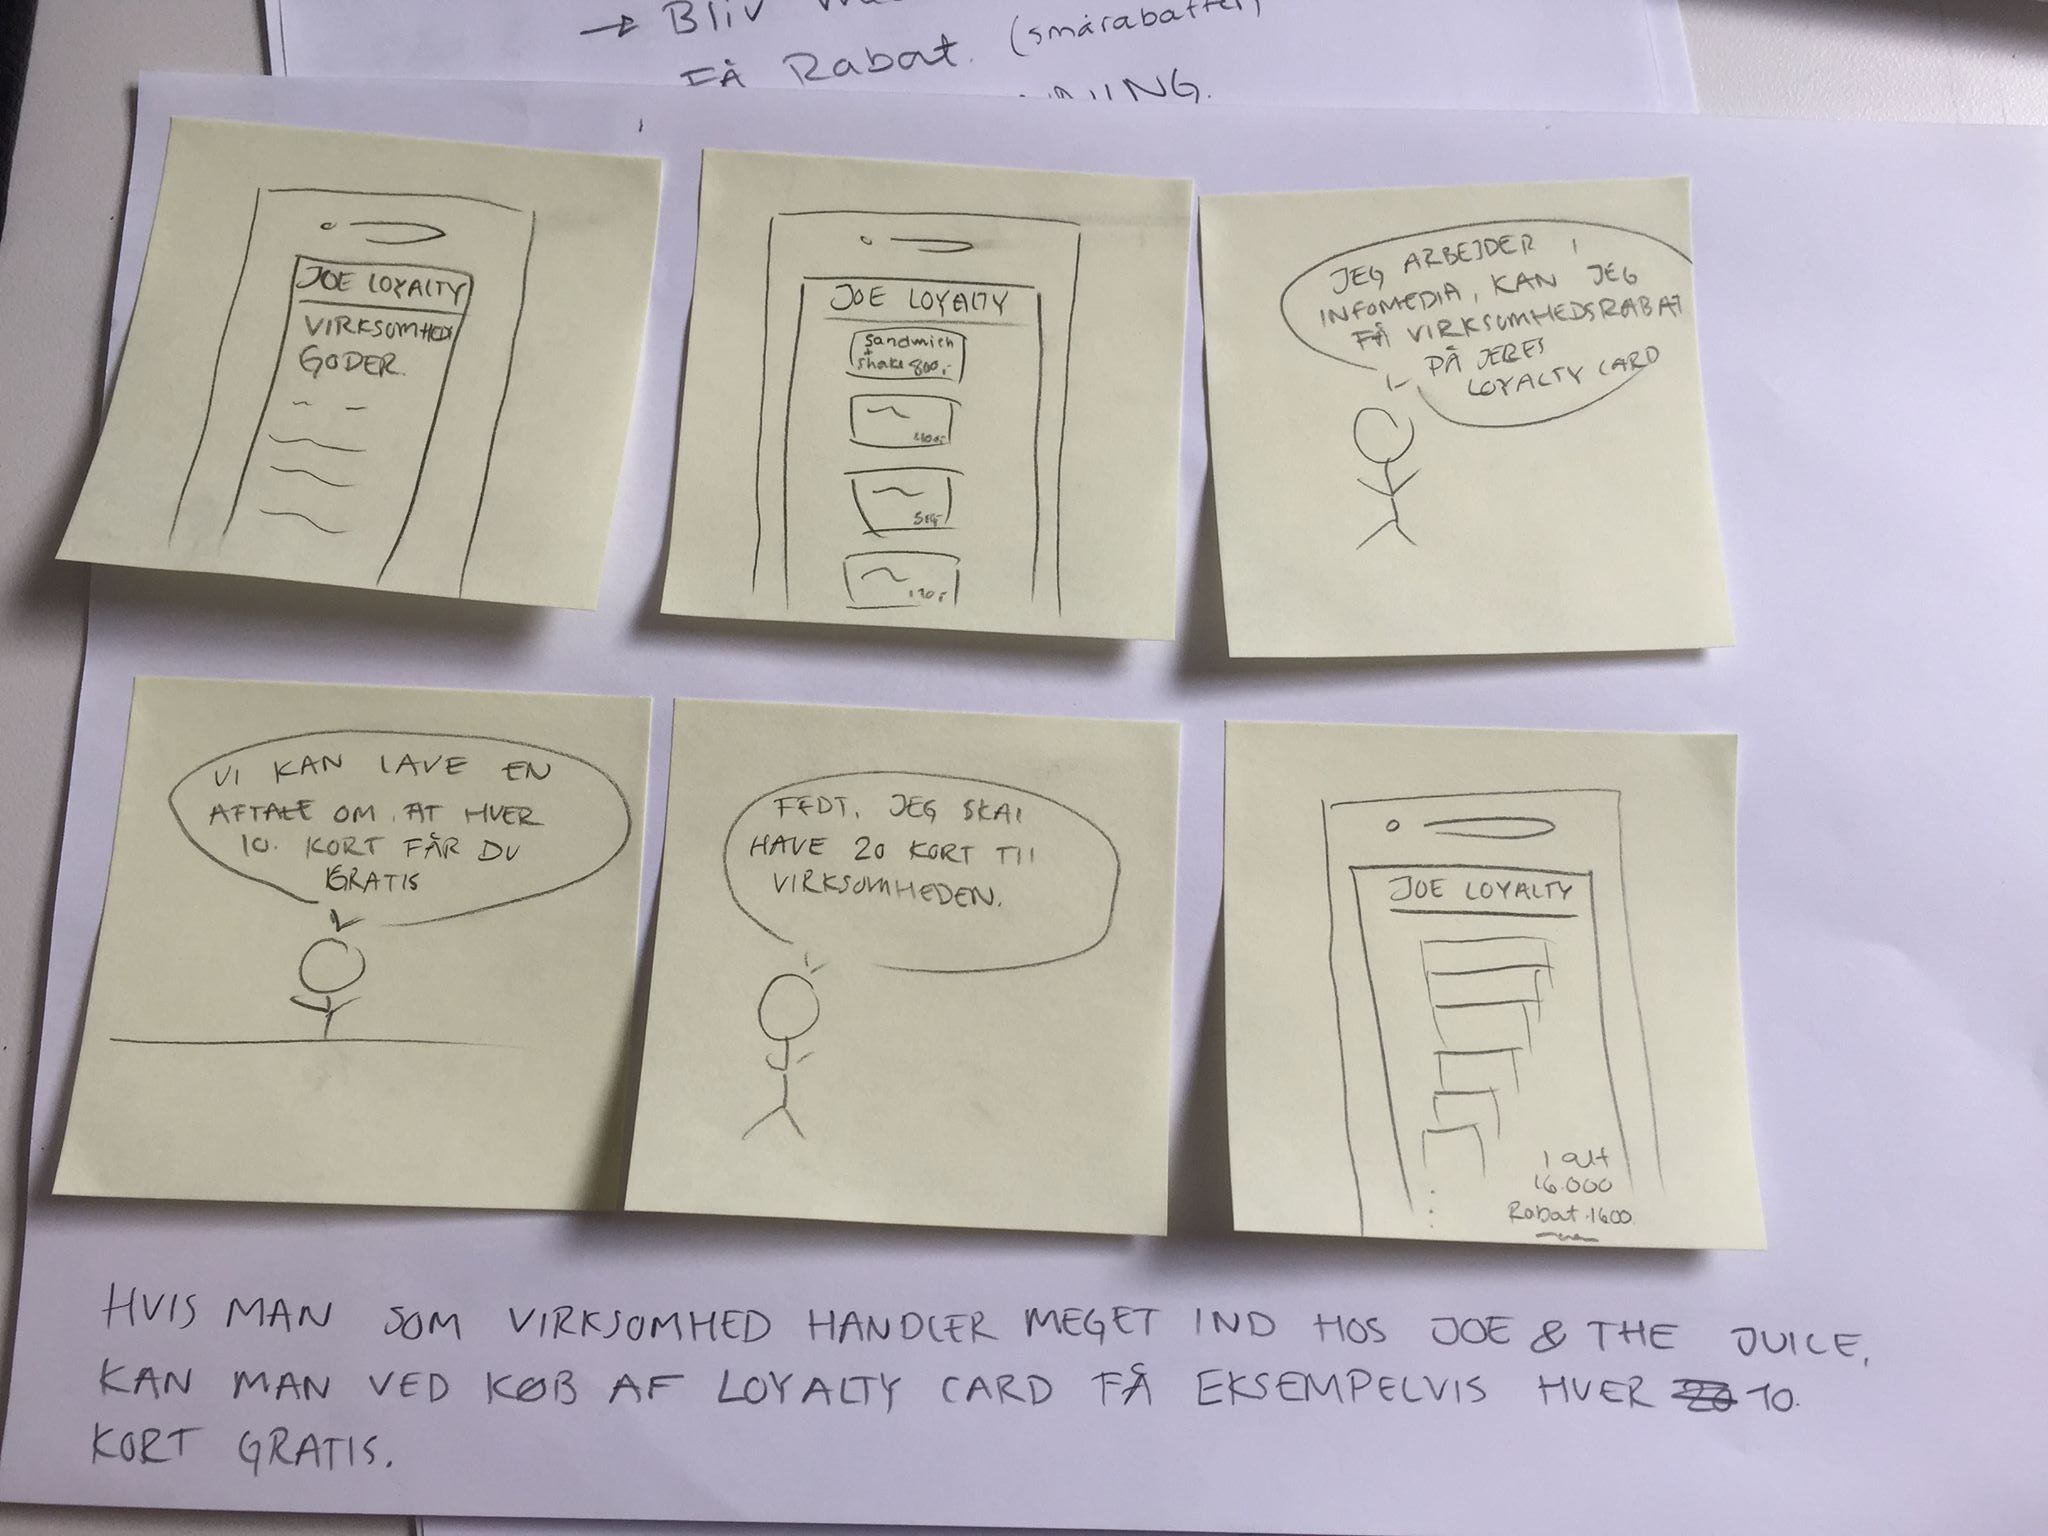 → BLIV
FÅ Rabat. (smårabatter)
JOE LOYALTY
VIRKSOMHEDS
GODER.
JOE LOYALTY
Sandwich
+
shake 800,-
JEG ARBEJDER I
INFOMEDIA, KAN JEG
FÅ VIRKSOMHEDSRABAT
PÅ JERES
LOYALTY CARD
VI KAN LAVE EN
AFTALE OM, AT HVER
10. KORT FÅR DU
GRATIS
FEDT, JEG SKAL
HAVE 20 KORT TIL
VIRKSOMHEDEN.
JOE LOYALTY
I alt
16.000
Rabat 1600
HVIS MAN SOM VIRKSOMHED HANDLER MEGET IND HOS JOE & THE JUICE,
KAN MAN VED KØB AF LOYALTY CARD FÅ EKSEMPELVIS HVER 10.
KORT GRATIS.